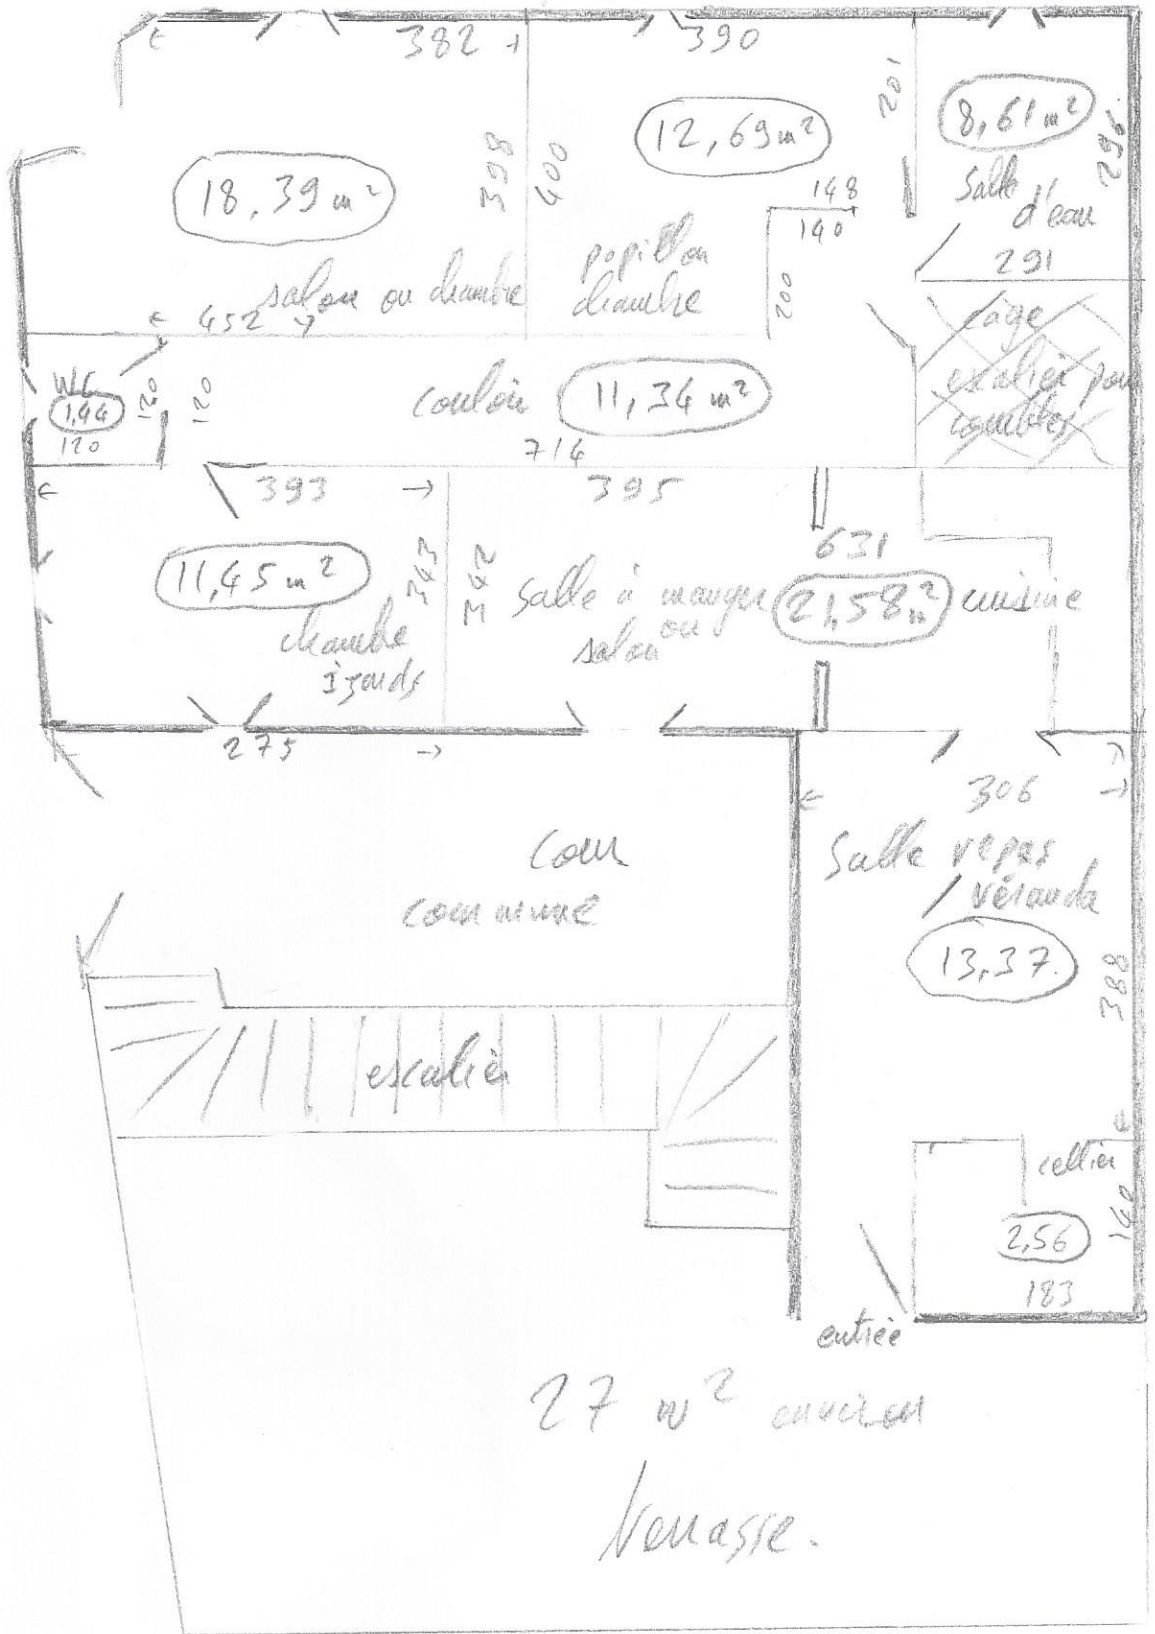 382
390
201
8,61 m²
296
12,69 m²
398
400
18,39 m²
148
140
Salle
d'eau
291
papillon
chambre
200
salon ou chambre
452
cage
escalier pour
combles
WC
1,44
120
120
120
couloir
11,34 m²
714
393
395
631
11,45 m²
343
342
Salle à manger
ou
salon
21,58 m²
cuisine
chambre
275
306
Cour
commune
Salle repas
/ véranda
13,37
388
escalier
cellier
2,56
140
183
entrée
27 m² environ
terrasse.